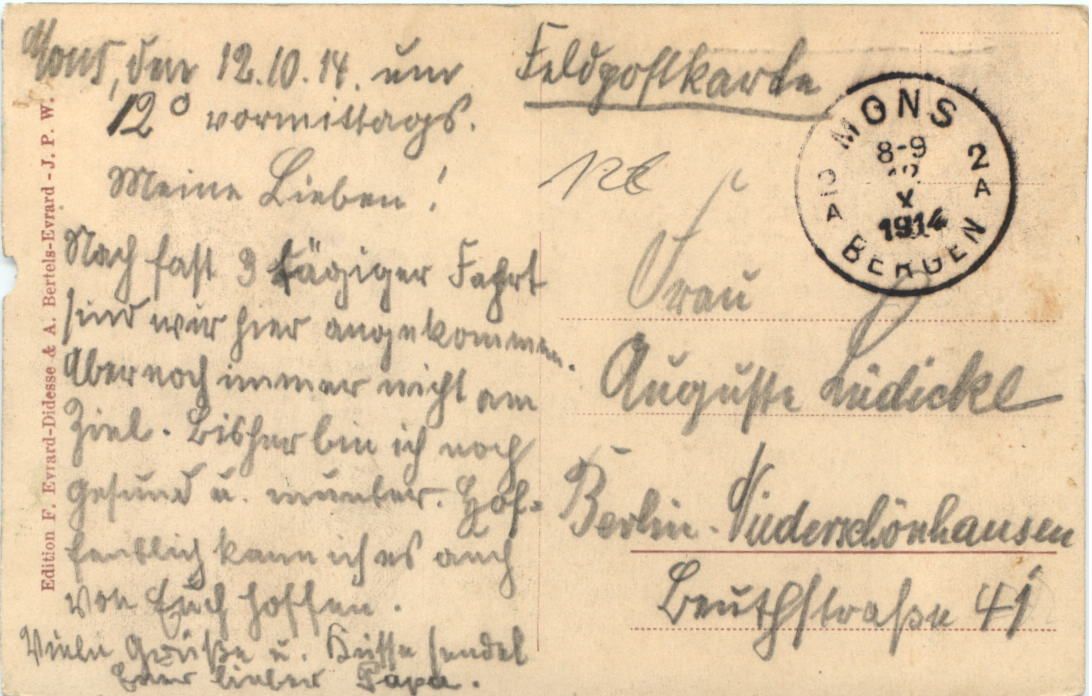 Mons, den 12.10.14. um
12° vormittags.
Meine Lieben!
Nach fast 3 tägiger Fahrt
sind wir hier angekommen.
Aber noch immer nicht am
Ziel. Bisher bin ich noch
gesund u. munter. Hof-
fentlich kann ich es auch
von Euch hoffen.
Viele Grüße u. Küsse sendet
Euer lieber Papa.
Edition F. Evrard-Didesse & A. Bertels-Evrard - J. P. W.
Feldpostkarte
MONS
8-9
X
1914
2A
2A
BERGEN
Frau
Auguste Lüdicke
Berlin-Niederschönhausen
Beuthstraße 41